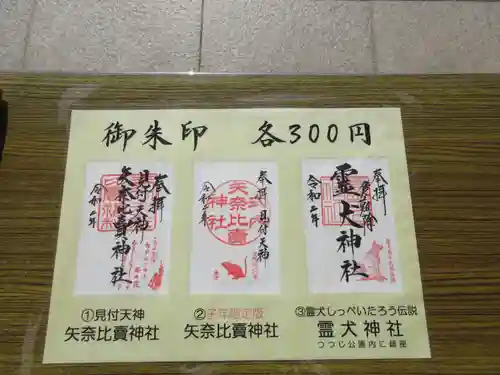 御朱印 各300円
奉拝
見付天神
矢奈比賣神社
令和二年
奉拝 見付天神
矢奈比賣
神社
令和二年
奉拝
霊犬神社
令和二年
①見付天神
矢奈比賣神社
②子年限定版
矢奈比賣神社
③霊犬しっぺいたろう伝説
霊犬神社
つつじ公園内に鎮座